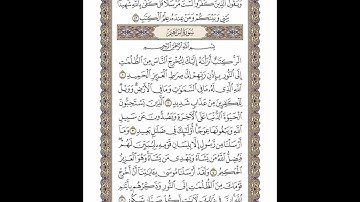 وَيَقُولُ الَّذِينَ كَفَرُوا لَسْتَ مُرْسَلًا قُلْ كَفَى بِاللَّهِ شَهِيدًا
بَيْنِي وَبَيْنَكُمْ وَمَنْ عِندَهُ عِلْمُ الْكِتَابِ ٤٣
سُورَةُ إِبْرَاهِيمَ
بِسْمِ اللَّهِ الرَّحْمَٰنِ الرَّحِيمِ
الر كِتَابٌ أَنزَلْنَاهُ إِلَيْكَ لِتُخْرِجَ النَّاسَ مِنَ الظُّلُمَاتِ
إِلَى النُّورِ بِإِذْنِ رَبِّهِمْ إِلَى صِرَاطِ الْعَزِيزِ الْحَمِيدِ ١
اللَّهِ الَّذِي لَهُ مَا فِي السَّمَاوَاتِ وَمَا فِي الْأَرْضِ وَوَيْلٌ
لِّلْكَافِرِينَ مِنْ عَذَابٍ شَدِيدٍ ٢ الَّذِينَ يَسْتَحِبُّونَ
الْحَيَاةَ الدُّنْيَا عَلَى الْآخِرَةِ وَيَصُدُّونَ عَن سَبِيلِ
اللَّهِ وَيَبْغُونَهَا عِوَجًا أُولَٰئِكَ فِي ضَلَالٍ بَعِيدٍ ٣ وَمَا
أَرْسَلْنَا مِن رَّسُولٍ إِلَّا بِلِسَانِ قَوْمِهِ لِيُبَيِّنَ لَهُمْ
فَيُضِلُّ اللَّهُ مَن يَشَاءُ وَيَهْدِي مَن يَشَاءُ وَهُوَ الْعَزِيزُ
الْحَكِيمُ ٤ وَلَقَدْ أَرْسَلْنَا مُوسَى بِآيَاتِنَا أَنْ أَخْرِجْ
قَوْمَكَ مِنَ الظُّلُمَاتِ إِلَى النُّورِ وَذَكِّرْهُم بِأَيَّامِ
اللَّهِ إِنَّ فِي ذَٰلِكَ لَآيَاتٍ لِّكُلِّ صَبَّارٍ شَكُورٍ ٥